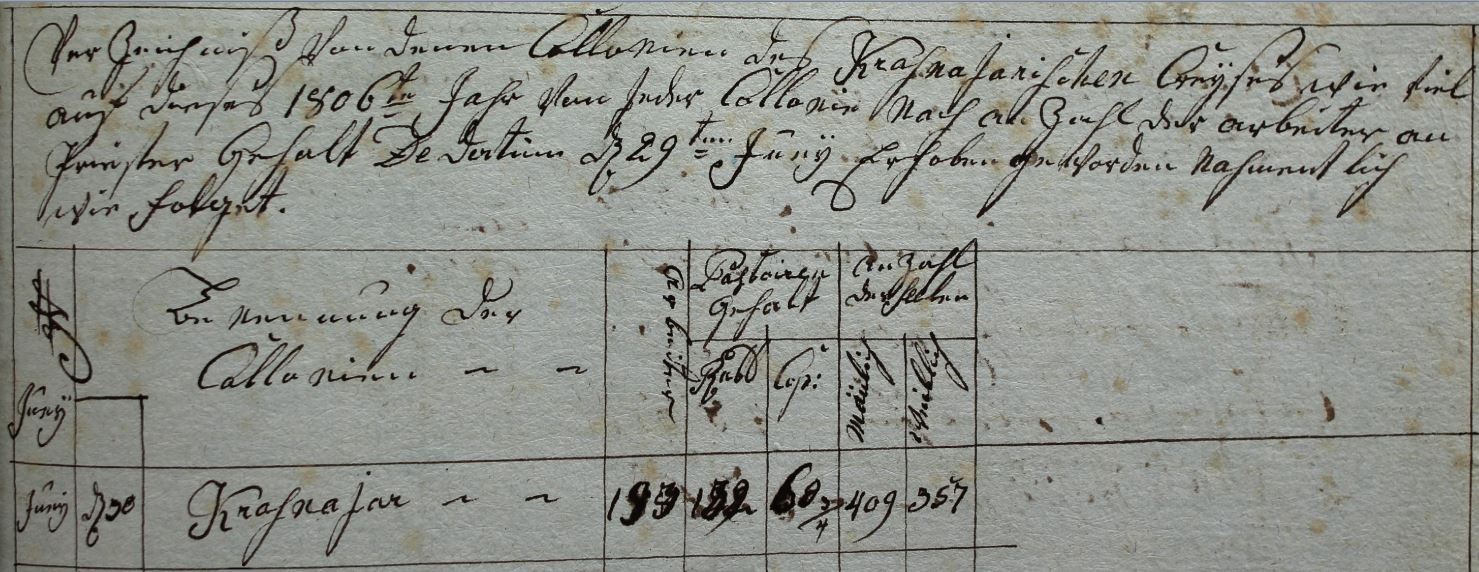 Ver Zeichniß Von denen Collonien des Krasnajarischen Creyses wie viel
auf dieses 1806te Jahr Von Jeder Collonie Nach an Zahl der arbeiter an
Priester Gehalt De Datum d 29ten Juny Erhoben geworden Nahmentlich
wie folget.
Juny
Benennung der
Collonien - -
Arbeiter
Pastoren
Gehalt
Rubl
Cop:
an Zahl
der Seelen
Mänlich
Weiblich
Juny d 30 Krasnajar - - 193 132 68 3/4 409 357